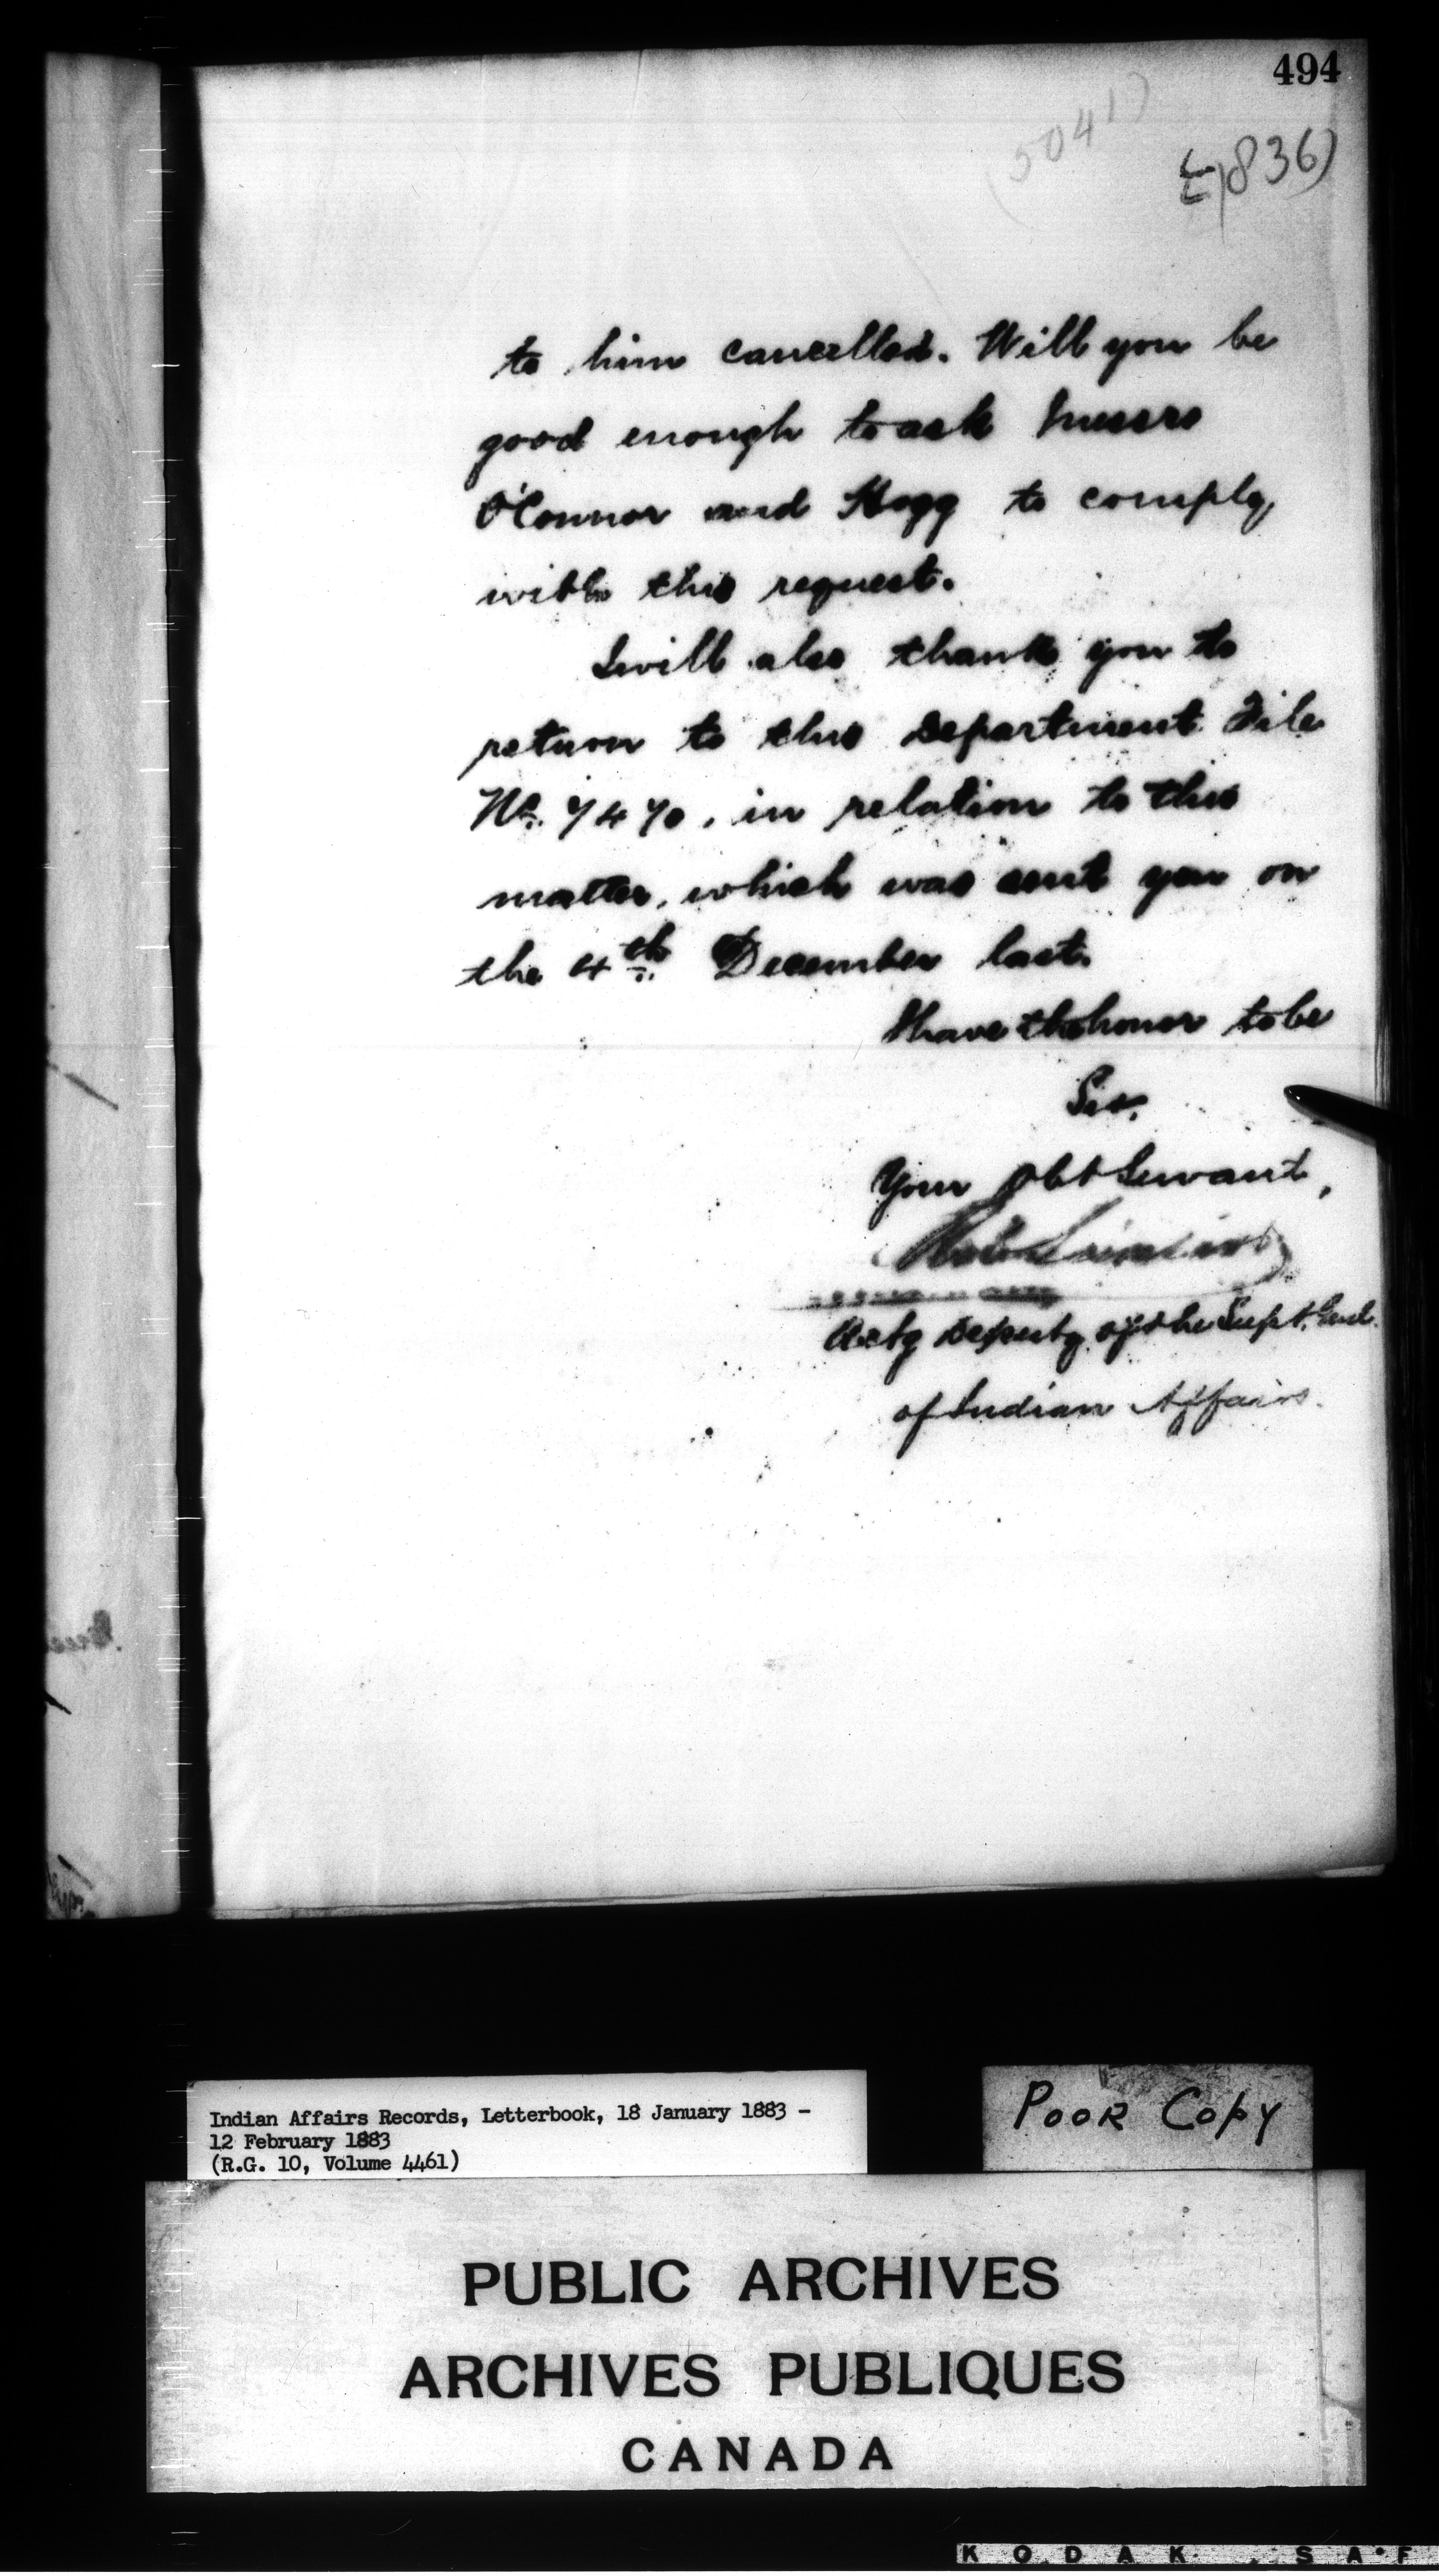 494
(5041)
to him cancelled. Will you be
good enough to ask Messrs
O'Connor and Hogg to comply
with this request.
I will also thank you to
return to this Department File
No. 7470, in relation to this
matter, which was sent you on
the 4th December last.
I have the honor to be
Sir,
Your Obt Servant,
Actg Deputy of the Supt. Genl.
of Indian Affairs.
Indian Affairs Records, Letterbook, 18 January 1883 -
12 February 1883
(R.G. 10, Volume 4461)
POOR COPY
PUBLIC ARCHIVES
ARCHIVES PUBLIQUES
CANADA
KODAK S A F